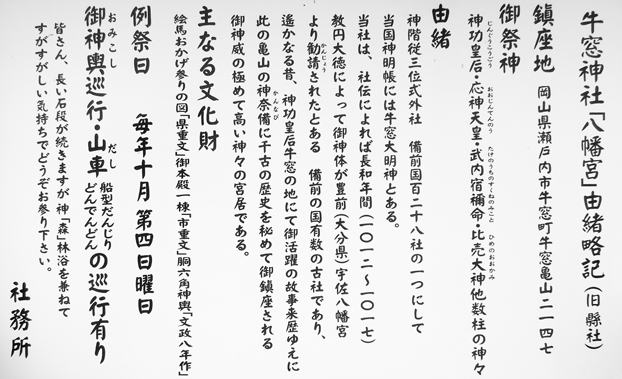 牛窓神社「八幡宮」由緒略記（旧縣社）
鎮座地 岡山県瀬戸内市牛窓町牛窓亀山二一四七
御祭神
神功皇后・応神天皇・武内宿禰命・比売大神他数柱の神々
じんぐうこうごう おおじんてんのう たけのうちのすくねのみこと ひめのおおかみ
由緒
神階従三位式外社 備前国百二十八社の一つにして
当国神明帳には牛窓大明神とある。
当社は、社伝によれば長和年間（一〇一二～一〇一七）
教円大徳によって御神体が豊前（大分県）宇佐八幡宮
より勧請されたとある 備前の国有数の古社であり、
かんじょう
遙かなる昔、神功皇后牛窓の地にて御活躍の故事来歴ゆえに
此の亀山の神奈備に千古の歴史を秘めて御鎮座される
かんなび
御神威の極めて高い神々の宮居である。
主なる文化財
絵馬おかげ参りの図「県重文」御本殿一棟「市重文」胴六角神輿「文政八年作」
例祭日 毎年十月第四日曜日
御神輿巡行・山車 船型だんじり どんでんどん の巡行有り
おみこし だし
皆さん、長い石段が続きますが神「森」林浴を兼ねて
すがすがしい気持ちでどうぞお参り下さい。
社務所